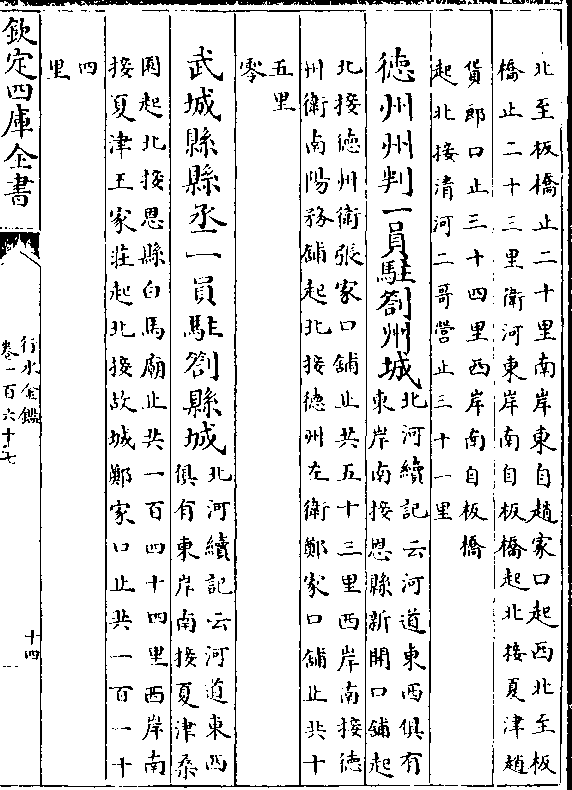 北至板橋止二十里南岸東自趙家口起西北至板
橋止二十三里衛河東岸南自板橋起北接夏津趙
貨郎口止三十四里西岸南自板橋
起北接清河二哥營止三十一里
德州州判一員駐劄州城北河續記云河道東西俱有
東岸南接恩縣新開口舖起
北接德州衛張家口舖止共五十三里西岸南接德
州衛南陽務舖起北接德州左衛鄭家口舖止共十
五里
零
武城縣縣丞一員駐劄縣城北河續記云河道東西
俱有東岸南接夏津桑
園起北接恩縣白馬廟止共一百四十四里西岸南
接夏津王家莊起北接故城鄭家口止共一百一十
四
里
欽定四庫全書
行水金鑑
卷一百六十七
十四